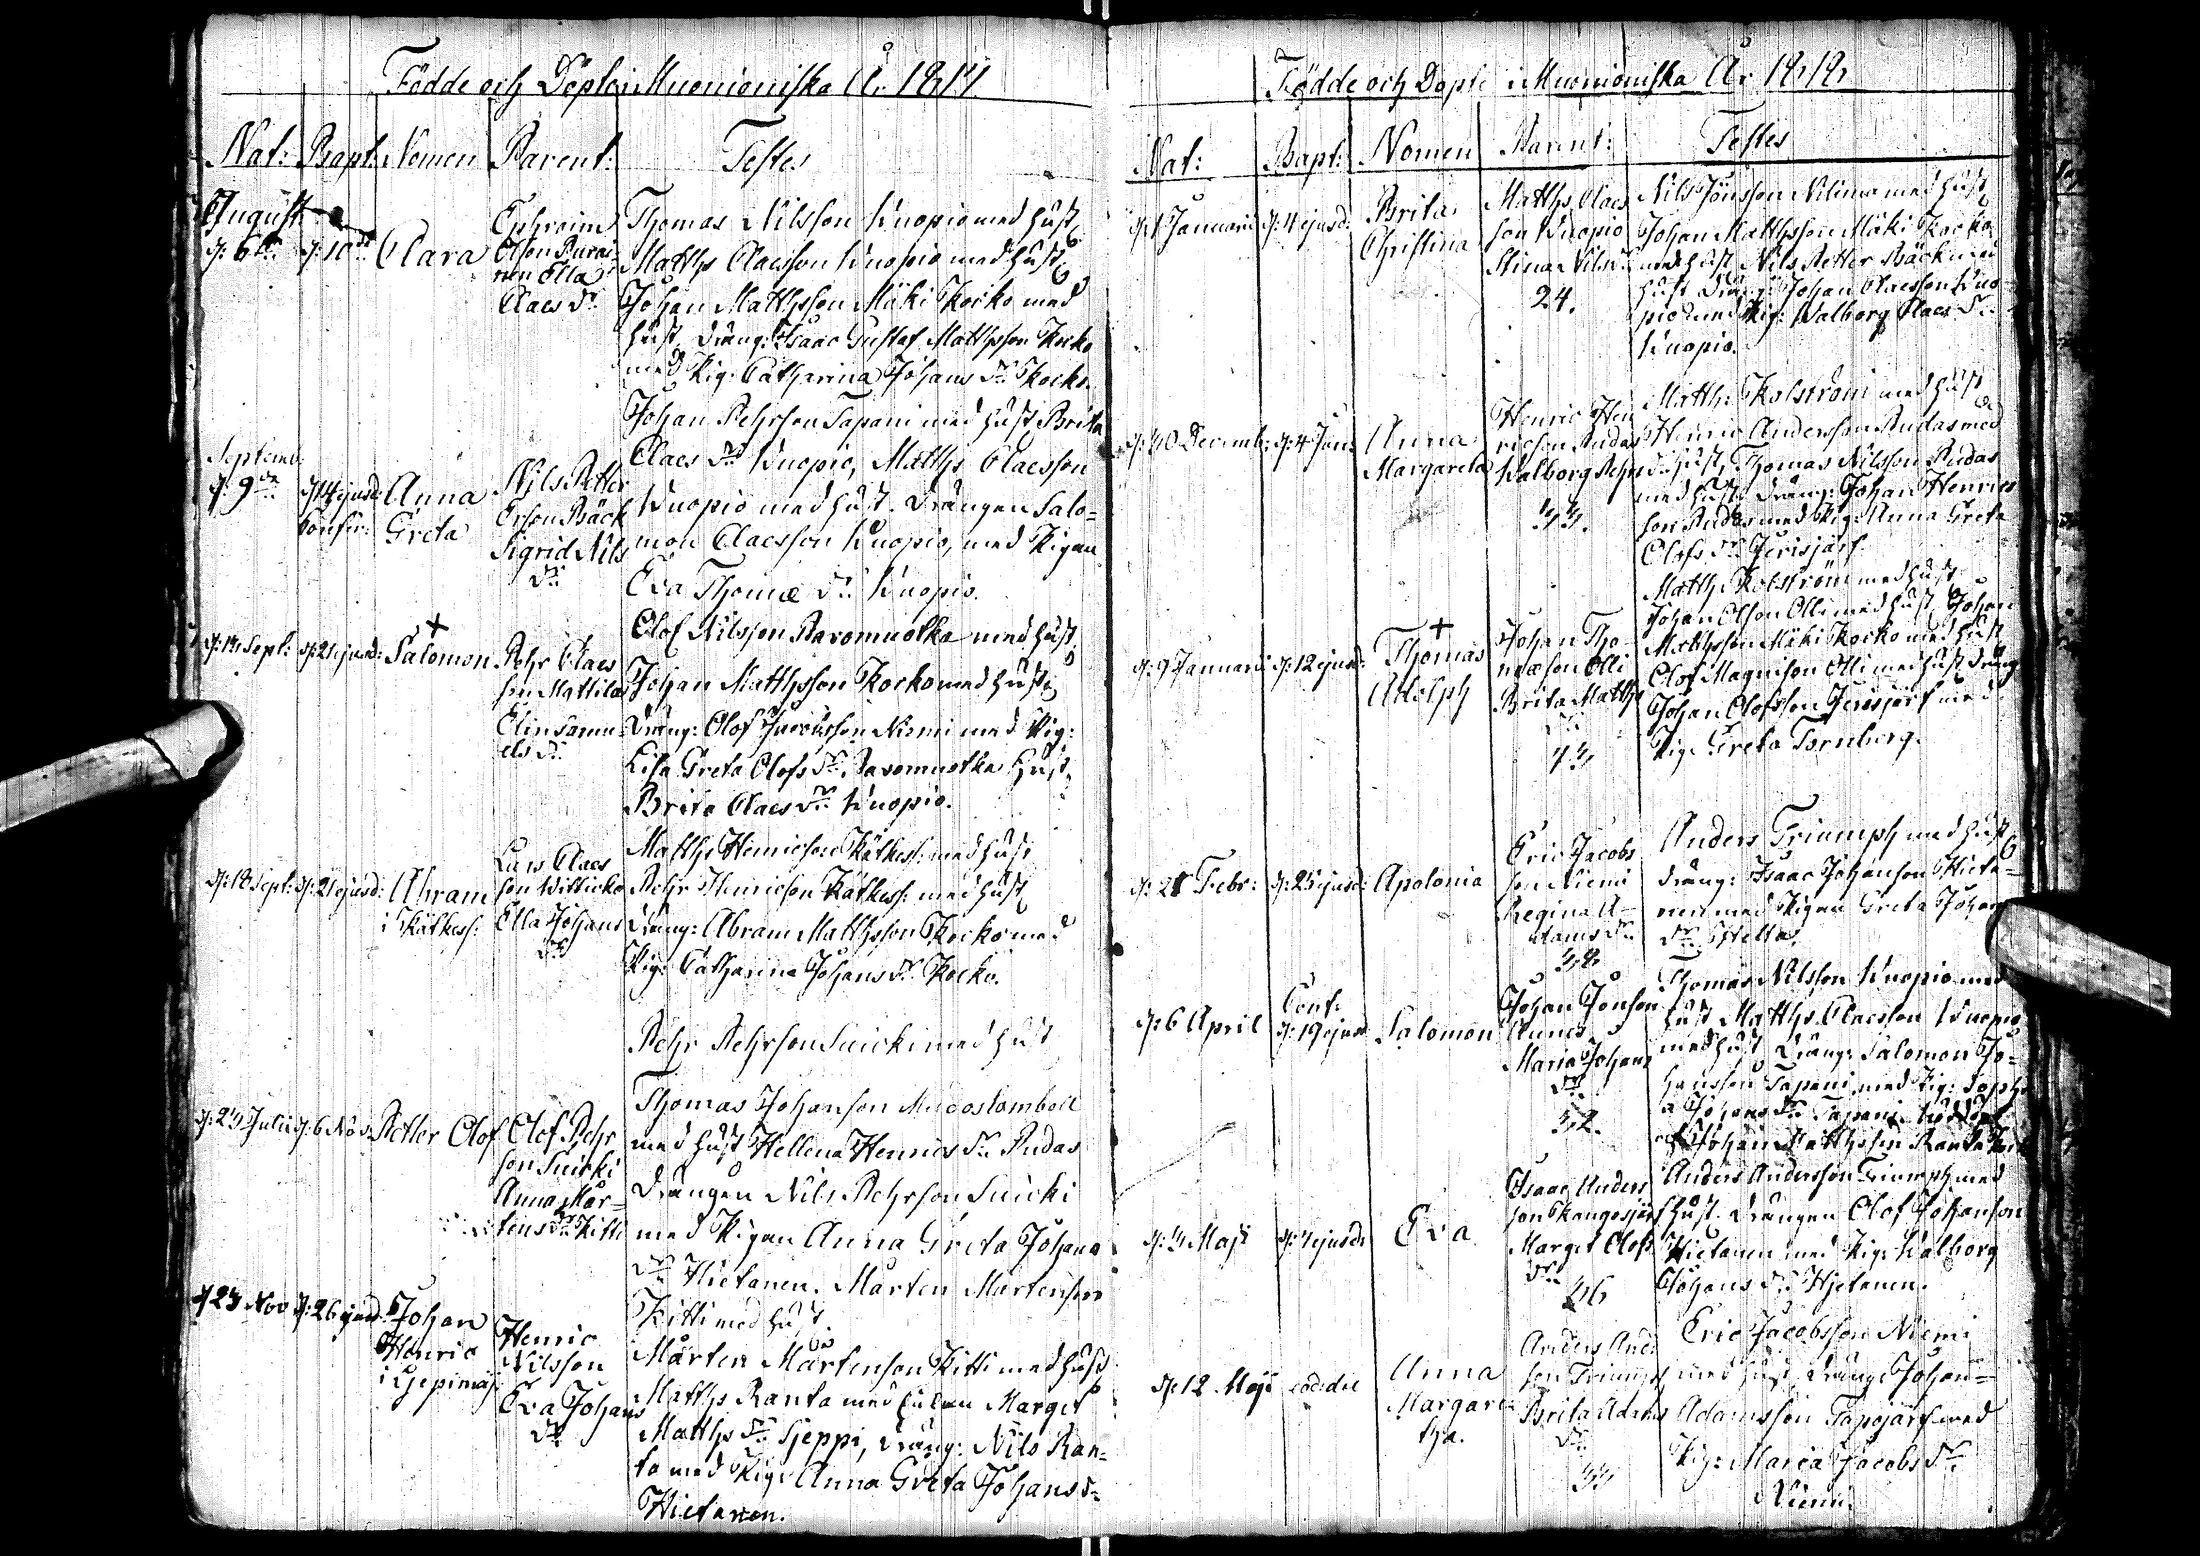 Födde och Döpte i Muonioniska År 1817
Nat: Bapt: Nomen Parent: Testes
August
d: 6te d: 10de Clara
Ephraim
Olson Purai-
nen Ella
Claes Dr
Thomas Nilsson Kuopio med hust
Matths Claesson Kuopio med hust
Johan Matthsson Mäki Kocko med
hust, Dräng: Isaac Gustaf Matthsson Kocko
med Pig: Catharina Johans Dr Kocko.
Septemb:
d: 9de d: 14 ejusd: Anna
Confir: Greta
Nils Petter
Erson Bäck
Sigrid Nils
Dr
Johan Pehrson Tapani med hust Brita
Claes Dr Kuopio, Matths Claesson
Kuopio med hust. Drängen Salo-
mon Claesson Kuopio, med Pigan
Eva Thomæ Dr Kuopio.
d: 13 Sept: d: 21 ejusd: Salomon
Pehr Claes
son Mattila
Elin Samu-
els Dr
Olof Nilsson Ravomuotka med hust
Johan Matthsson Kocko med hust
Dräng: Olof Jacobsson Niemi med Pig:
Lisa Greta Olofs Dr Ravomuotka Hust
Brita Claes Dr Kuopio.
d: 18 Sept: d: 21 ejusd: Abram
i Kätkess:
Lars Claes
son Willicko
Ella Johans
Dr
Matths Henricson Kätkess: med hust
Pehr Henricson Kätkess: med hust
Dräng: Abram Matthsson Kocko med
Pig: Catharina Johans Dr Kocko.
d: 23 Julii d: 6 Nov: Petter Olof
Olof Pehr
son Suicki
Anna Mår-
tens Dr Kitti
Pehr Pehrson Suicki med hust
Thomas Johanson Muddoslombol
med hust Hellena Henrics Dr Rudas
Drängen Nils Pehrson Suicki
med Pigan Anna Greta Johans
Dr Hietanen. Mårten Mårtenson
Kitti med hust.
d 23 Nov d: 26 ejusd: Johan
Henric
Henric
Nilsson
Eva Johans
Dr
Mårten Mårtenson Kitti med hust
Matths Ranta med Enkan Marget
Matths Dr Sjeppi, Dräng: Nils Ran-
ta med Pig: Anna Greta Johans Dr
Hietanen.
Födde och Döpte i Muonioniska År 1818
Nat: Bapt: Nomen Parent: Testes
d: 1 Januari d: 4 ejusd: Brita
Christina
Matths Claes
son Kuopio
Stina Nils Dr
24.
Nils Jönsson Nilima med hust
Johan Matthsson Mäki Kocko
med hust Nils Petter Bäck med
hust Dräng: Johan Claesson Kuo-
pio med Pig: Walborg Claes Dr
Kuopio.
d: 30 Decemb: d: 4 Jan: Anna
Margareta
Henric Hen
ricson Rudas
Walborg Pehrs Dr
33.
Matth: Kolström med hust
Henric Andersson Rudas med
hust, Thomas Nilsson Rudas
med hust. Dräng: Johan Henric
son Rudas med Pig: Anna Greta
Olofs Dr Jerisjärf.
d: 9 Januari d: 12 ejusd: Thomas
Adolph
Johan Tho-
mæson Olli
Brita Matths
Dr
43
Matth Kolström med hust
Johan Olson Olli med hust, Johan
Matthsson Mäki Kocko med hust
Olof Magnison Olli med hust Dräng
Johan Olofsson Jerisjärf med
Pig: Greta Tornberg.
d: 21 Febr: d: 25 ejusd: Apolonia
Eric Jacobs
son Niemi
Regina A-
dams Dr
38
Anders Triumph med hust
Dräng: Isaac Johanson Hieta-
nen med Pigan Greta Johans
Dr
d: 6 April Conf:
d: 19 ejusd: Salomon
Johan Jonson
Annes
Maria Johans
Dr
32.
Thomas Nilsson Kuopio med
hust Matths Claesson Kuopio
med hust Dräng: Salomon Jo-
hansson Tapani med Pig: Sophi
a Johans Dr Tapani
Johan Matthsson Ranta
d: 3 Maji d: 7 ejusd: Eva
Isaac Anders
son Kangosjärf
Marget Olofs
Dr
36
Anders Andersson Triumph med
hust. Drängen Olof Johanson
Hietanen med Pig: Walborg
Johans Dr Hjetanen.
d: 12 Maji eod: die Anna
Margare
tha.
Anders Anders
son Triumph
Brita Adams
Dr
33
Eric Jacobsson Niemi
med hust, Dräng: Johan
Adamsson Tapojärf med
Pig: Maria Jacobs Dr
Niemi.